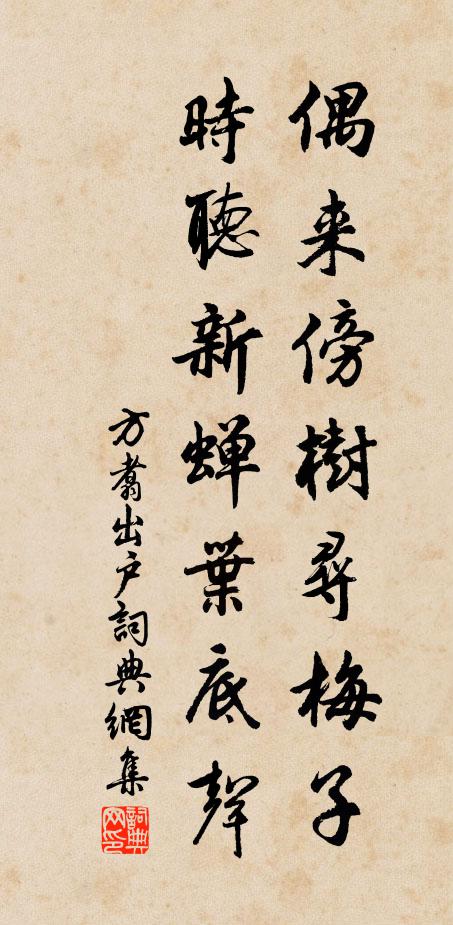 偶来傍樹尋梅子
時聽新蝉葉底聲
方翥出户詞典網集
詞典網印